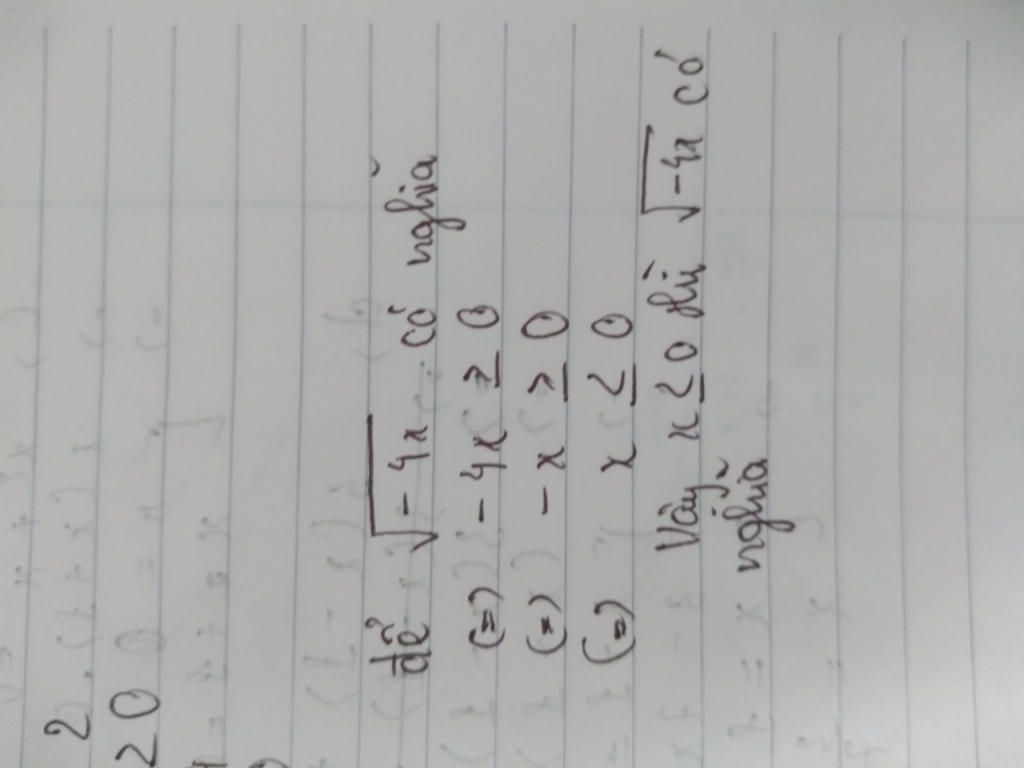 2
≥ 0
để √-4x có nghĩa
(=) -4x ≥ 0
(=) -x ≥ 0
(=) x ≤ 0
Vậy x ≤ 0 thì √-4x có
nghĩa